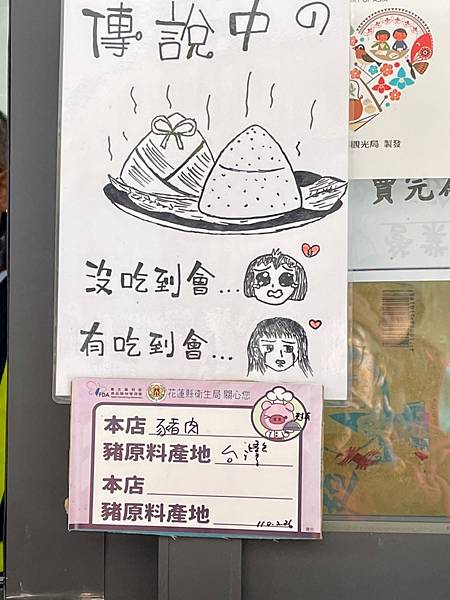 傳說中の
沒吃到會...
有吃到會...
觀光局 製發
賣完
FDA
花蓮縣衛生局 關心您
本店 豬肉
豬原料產地 台灣
本店
豬原料產地
110.2.26